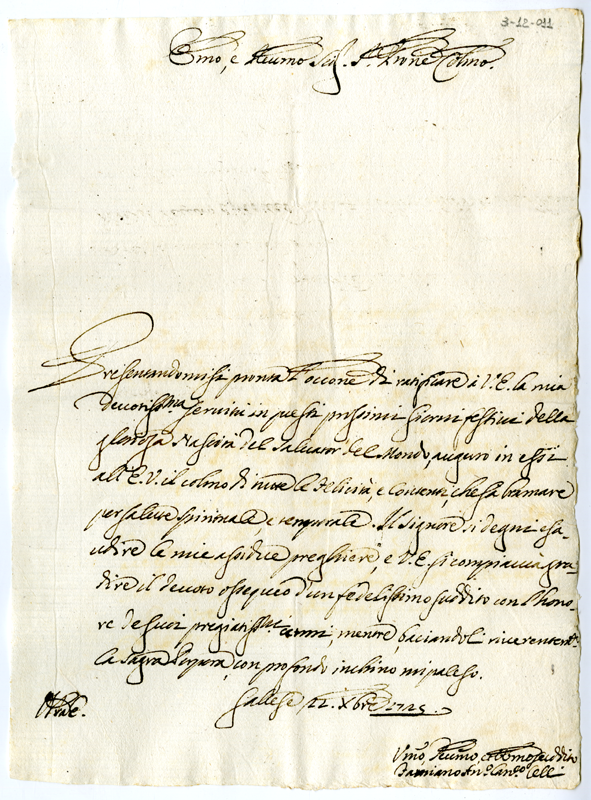 3-12-011
Emo, e Reumo Sig. P. Prone Colmo.
Presentandomisi pronta l'occone di ratificare à V.E. la mia
devotissma servitù in questi prossimi giorni festivi della
gloriosa Nascita del Salvator del Mondo, auguro in essi
all'E.V. il colmo di tutte le felicità, e contenti, che sà bramare
per salute spirituale e temporale. Il Signore si degni esa-
udire le mie assidue preghiere e V.E. si compiaccia gra-
dire il devoto ossequio d'un fedelissimo suddito con l'hono-
re de suoi pregiatissmi cenni, mentre, baciandoli riverentemte
la Sagra Porpora, con profondo inchino mi paleso.
Gallese 22. Xbre 1725.
Umo, e suddito
Damiano Anto. Celli